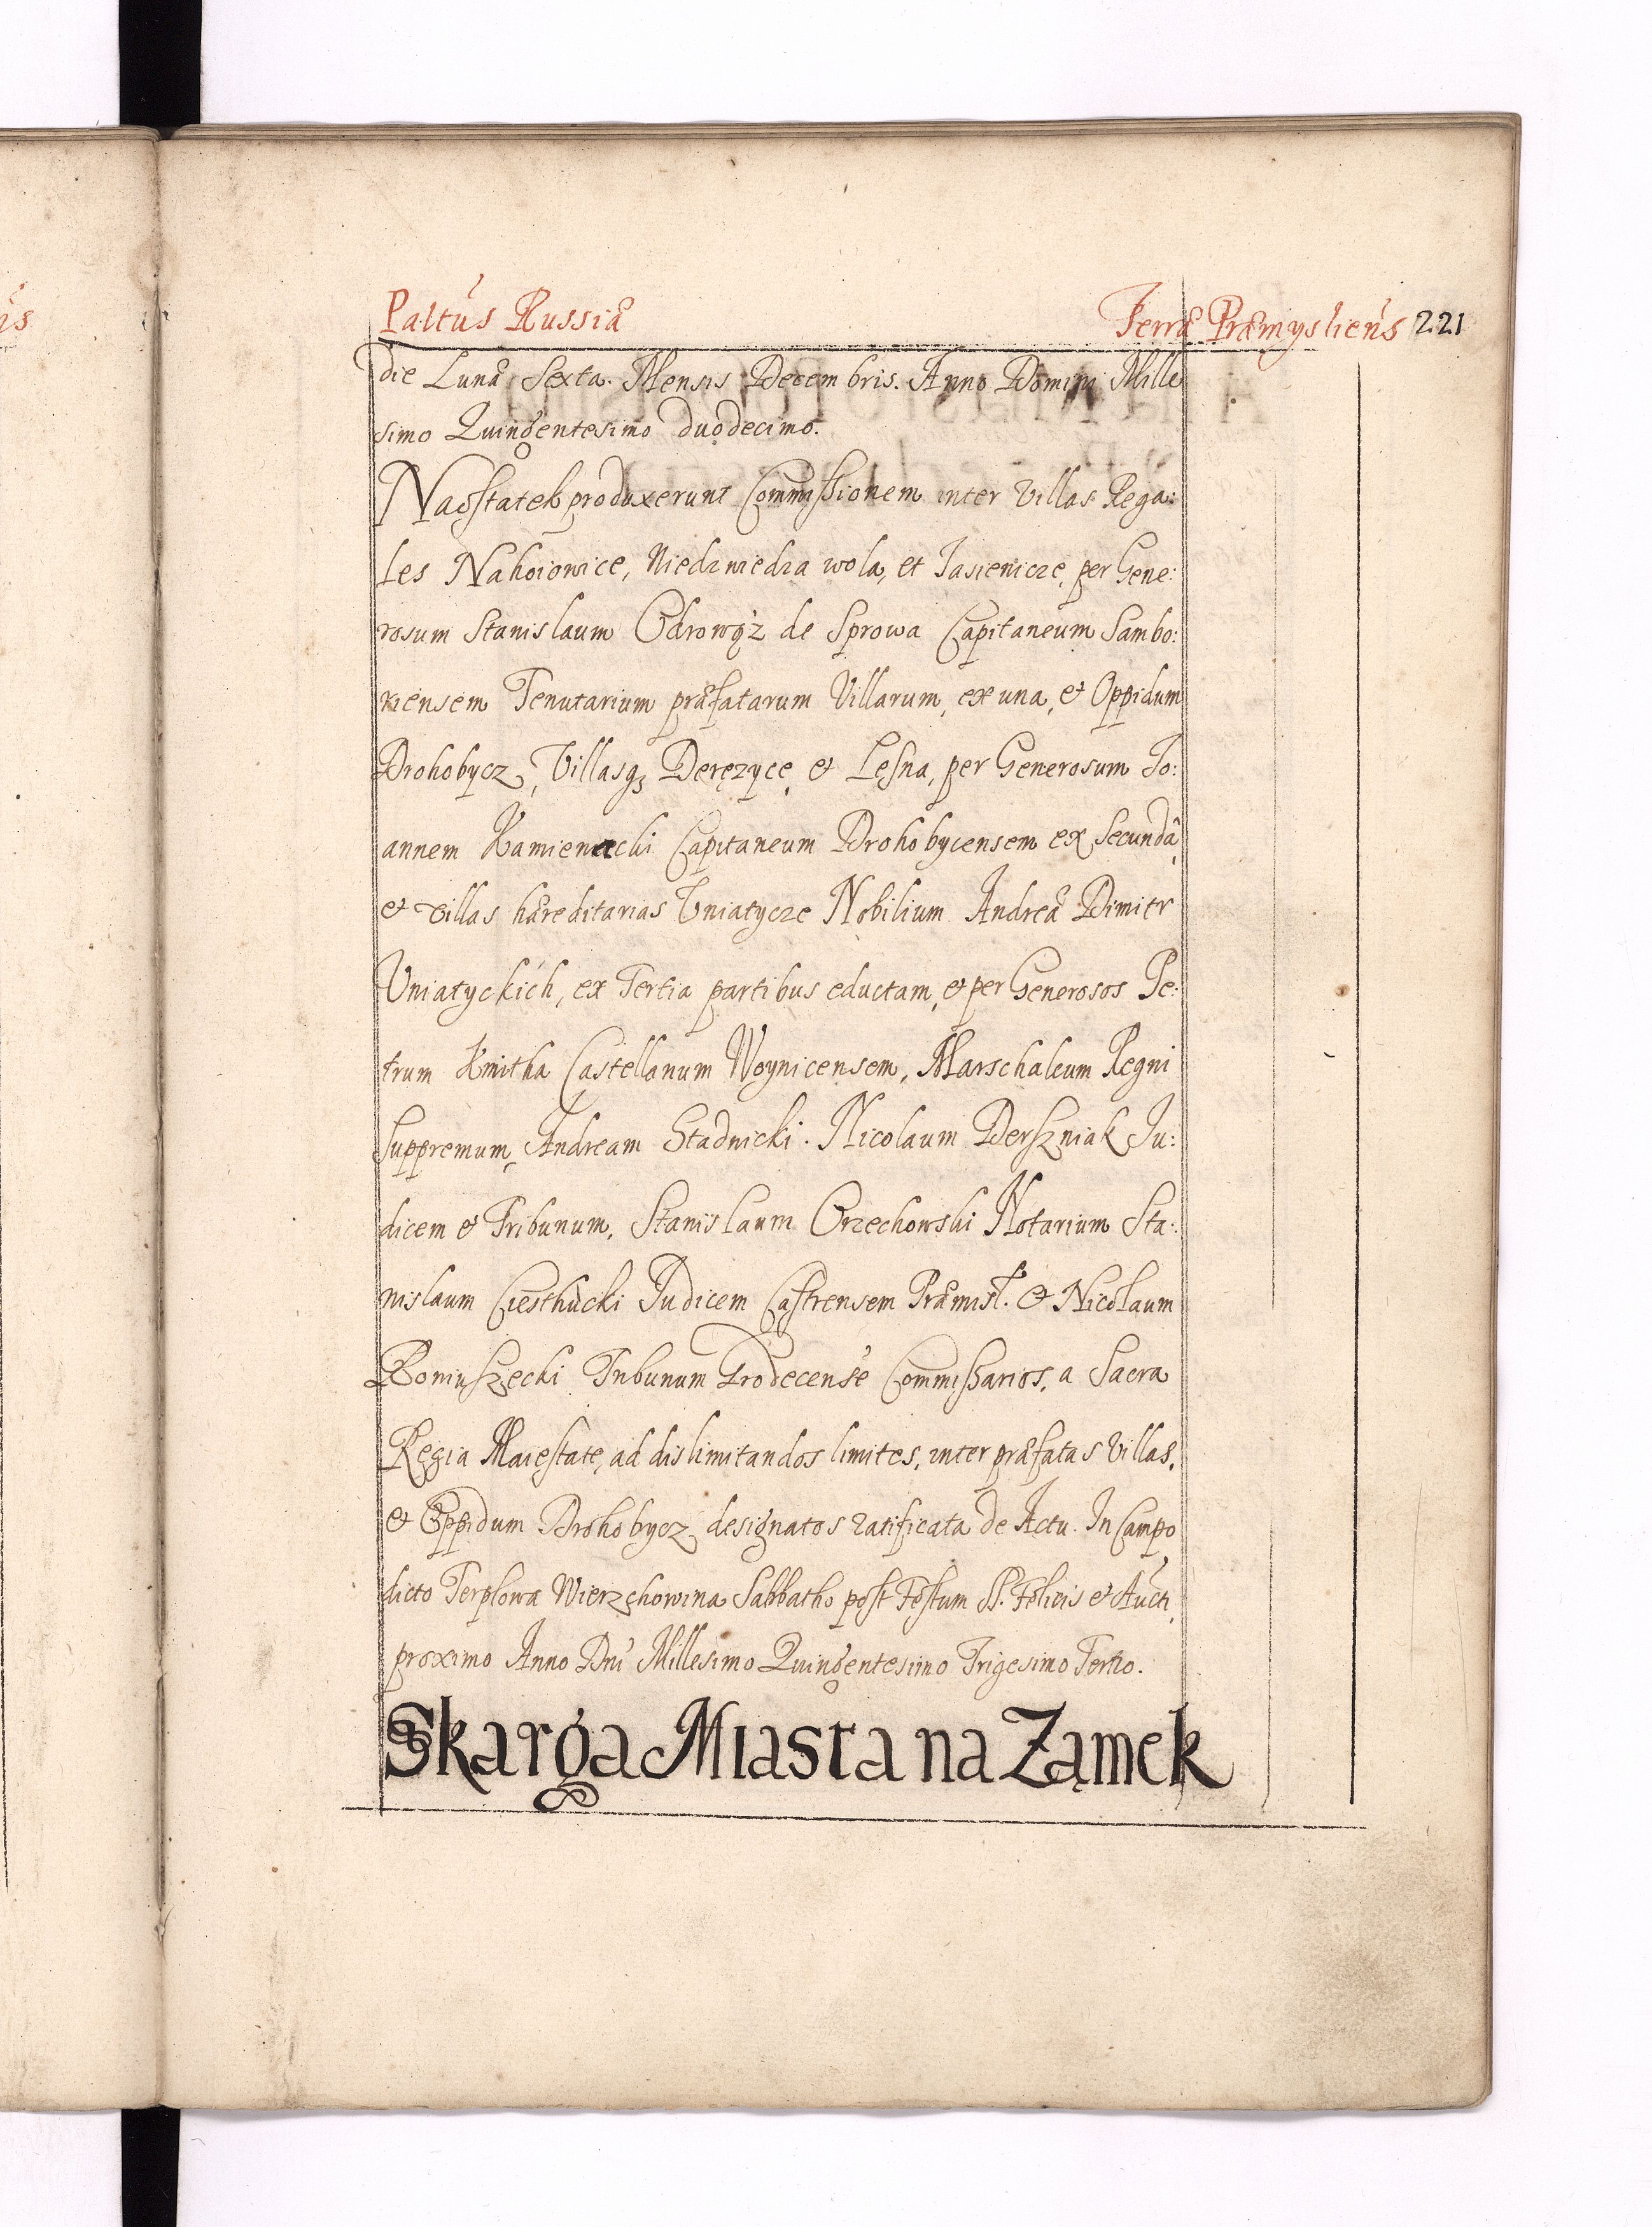 Paltus Russiæ Terræ Præmysliens 221
die Lunæ Sexta. Mensis Decembris. Anno Domini Mille
simo Quingentesimo duodecimo.
Naostatek produxerunt Commissionem inter Villas Rega:
les Nahoiowice, Niedzwiedza wola, et Jasienicze, per Gene:
rosum Stanislaum Odrowąż de Sprowa Capitaneum Sambo:
riensem Tenutarium præfatarum Villarum, ex una, et Oppidum
Drohobycz, Villasq₃ Deręzyce, et Leśna, per Generosum Jo:
annem Kamieniecki Capitaneum Drohobycensem ex Secundâ,
et villas hæreditarias Uniatycze Nobilium Andreæ Dimitr
Uniatyckich, ex Tertia partibus eductam, et per Generosos Pe:
trum Kmitha Castellanum Woynicensem, Marschalcum Regni
Suppremum, Andream Stadnicki. Nicolaum Derszniak Ju:
dicem et Tribunum, Stanislaum Orzechowski Notarium Sta:
nislaum Ciesthucki Judicem Castrensem Præmisl. et Nicolaum
Boniuszecki Tribunum Grodecense Commissarios, a Sacra
Regia Maiestate, ad dislimitandos limites, inter præfatas Villas,
et Oppidum Drohobycz, designatos ratificata de Actu. In Campo
dicto Terplowa Wierzchowina Sabbatho post Festum SS. Felicis et Aucti,
proximo Anno Dni Millesimo Quingentesimo Trigesimo Tertio.
Skarga Miasta na Zamek